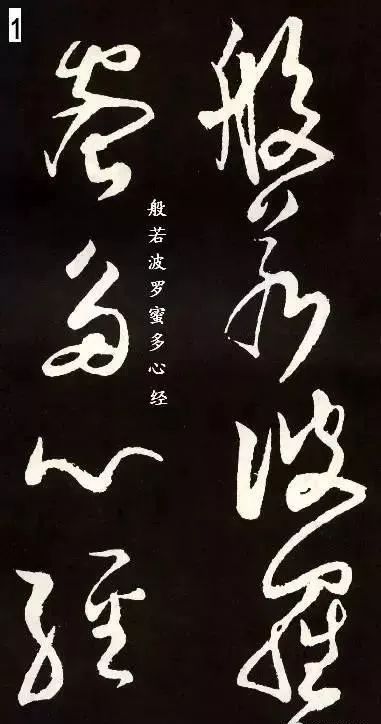 1
般若波羅
蜜多心經
般若波罗蜜多心经